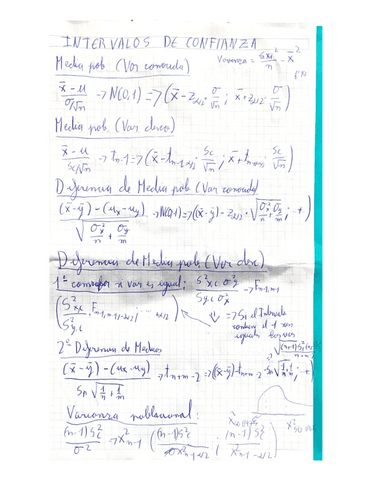 INTERVALOS DE CONFIANZA
Varianza = Σxi²/n - x̄²
Media pob. (Var conocida)
x̄ - u / σ/√n → N(0,1) => (x̄ - z α/2 · σ/√n ; x̄ + z α/2 · σ/√n)
Media pob. (Var desco)
x̄ - u / Sc/√n → t n-1 => (x̄ - t n-1, α/2 · Sc/√n ; x̄ + t n-1, α/2 · Sc/√n)
Diferencia de Media pob (Var conocida)
(x̄ - ȳ) - (ux - uy) / √(σx²/n + σy²/m) → N(0,1) => (x̄ - ȳ) - z α/2 · √(σx²/n + σy²/m) ; +)
Diferencia de Media pob. (Var desc)
1º comprobar si var es igual: S²xc σ²y / S²yc σ²x → F n-1, m-1
(S²xc / S²yc · F n-1, m-1, 1-α/2 ; α/2)
=> Si el Intervalo
contiene el 1 son
iguales
2º Diferencia de Medias
(x̄ - ȳ) - (ux - uy) / Sp √(1/n + 1/m) → t n+m-2 => (x̄ - ȳ) - t n+m-2 · ; +)
Varianza poblacional:
(n-1)S²c / σ² → X² n-1 ( (n-1)S²c / X² n-1, α/2 ; (n-1)S²c / X² n-1, 1-α/2 )